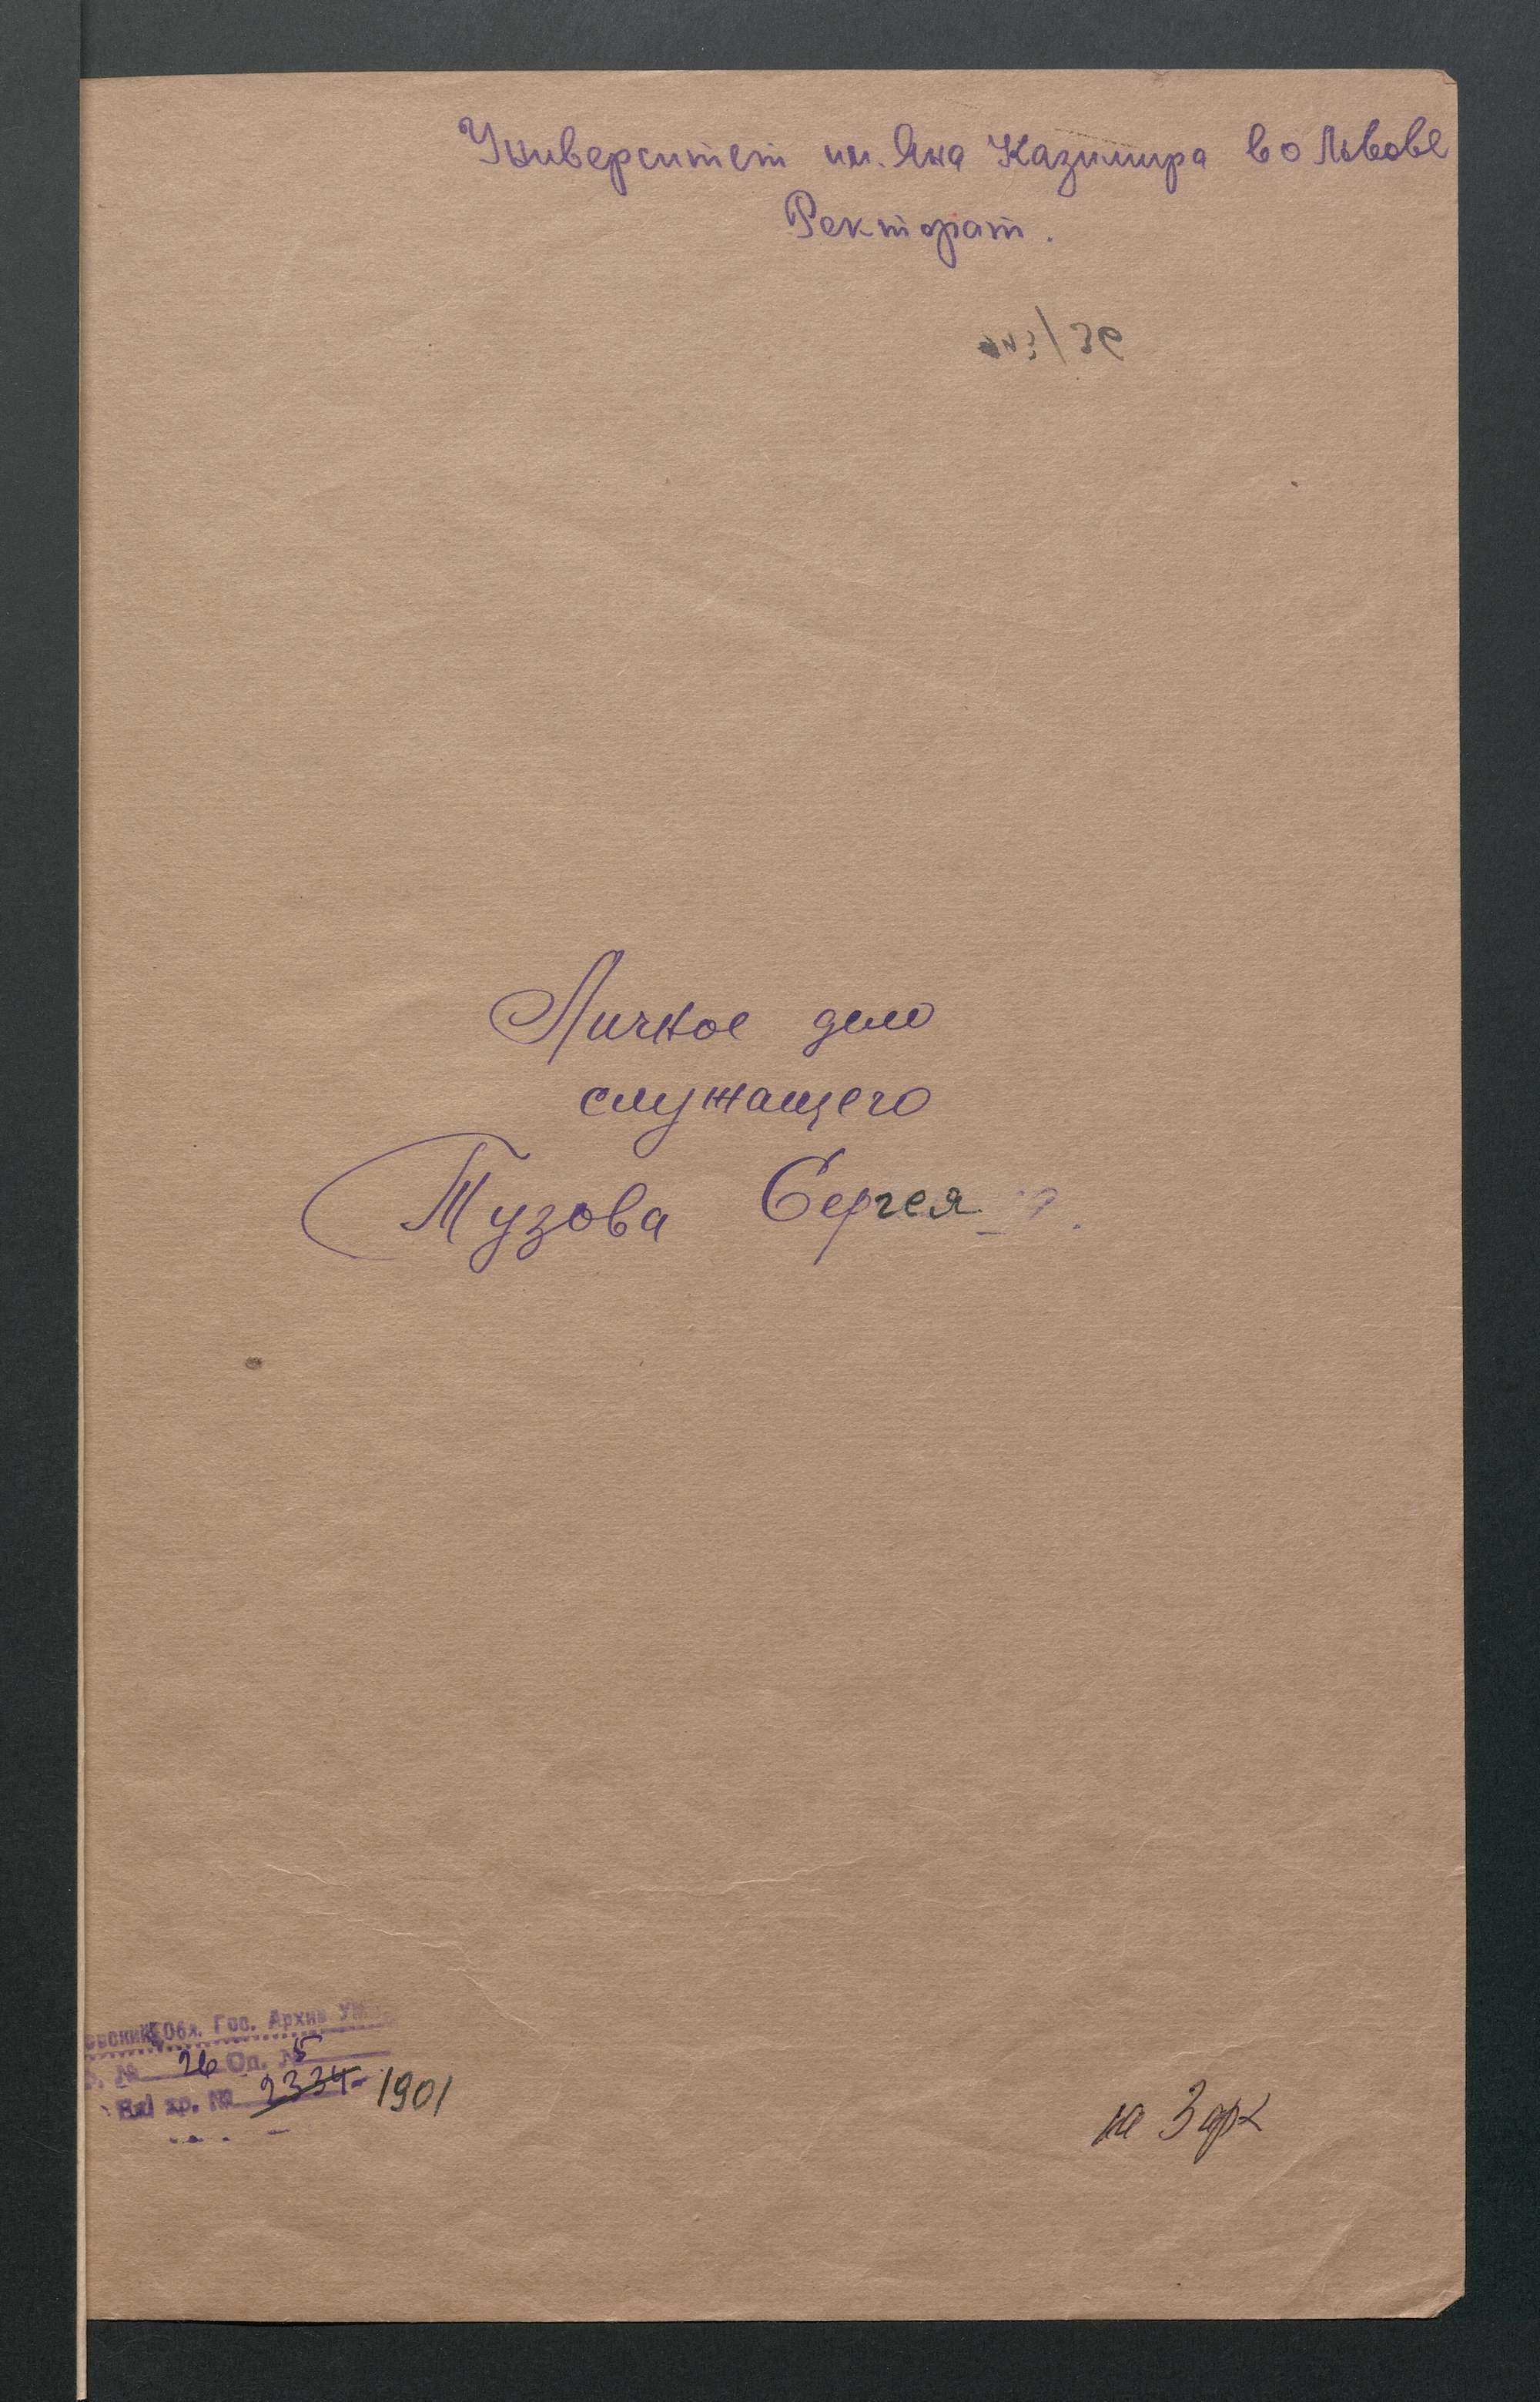 Университет им. Яна Казимира во Львове
Ректорат.
Личное дело
служащего
Тузова Сергея
Обл. Гос. Архив
№ 26 Оп. № 5
хр. № 2334 1901
на 3 арк